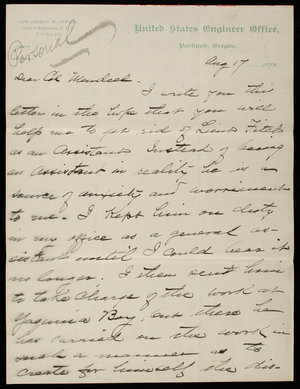 CAPT. THOMAS W. SYMONS
Corps of Engineers, U. S. A.
United States Engineer Office,
Portland, Oregon,
Personal
Aug 17 189
Dear Col. Mendell.
I write you this
letter in the hope that you will
help me to get rid of Lieut Fitch
as an Assistant. Instead of being
an assistant in reality he is a
source of anxiety and worriment
to me. I kept him on duty
in my office as a general as-
sistant until I could bear it
no longer. I then sent him
to take charge of the work at
Yaquina Bay, but there he
has carried on the work in
such a manner as to
create for himself the dis-